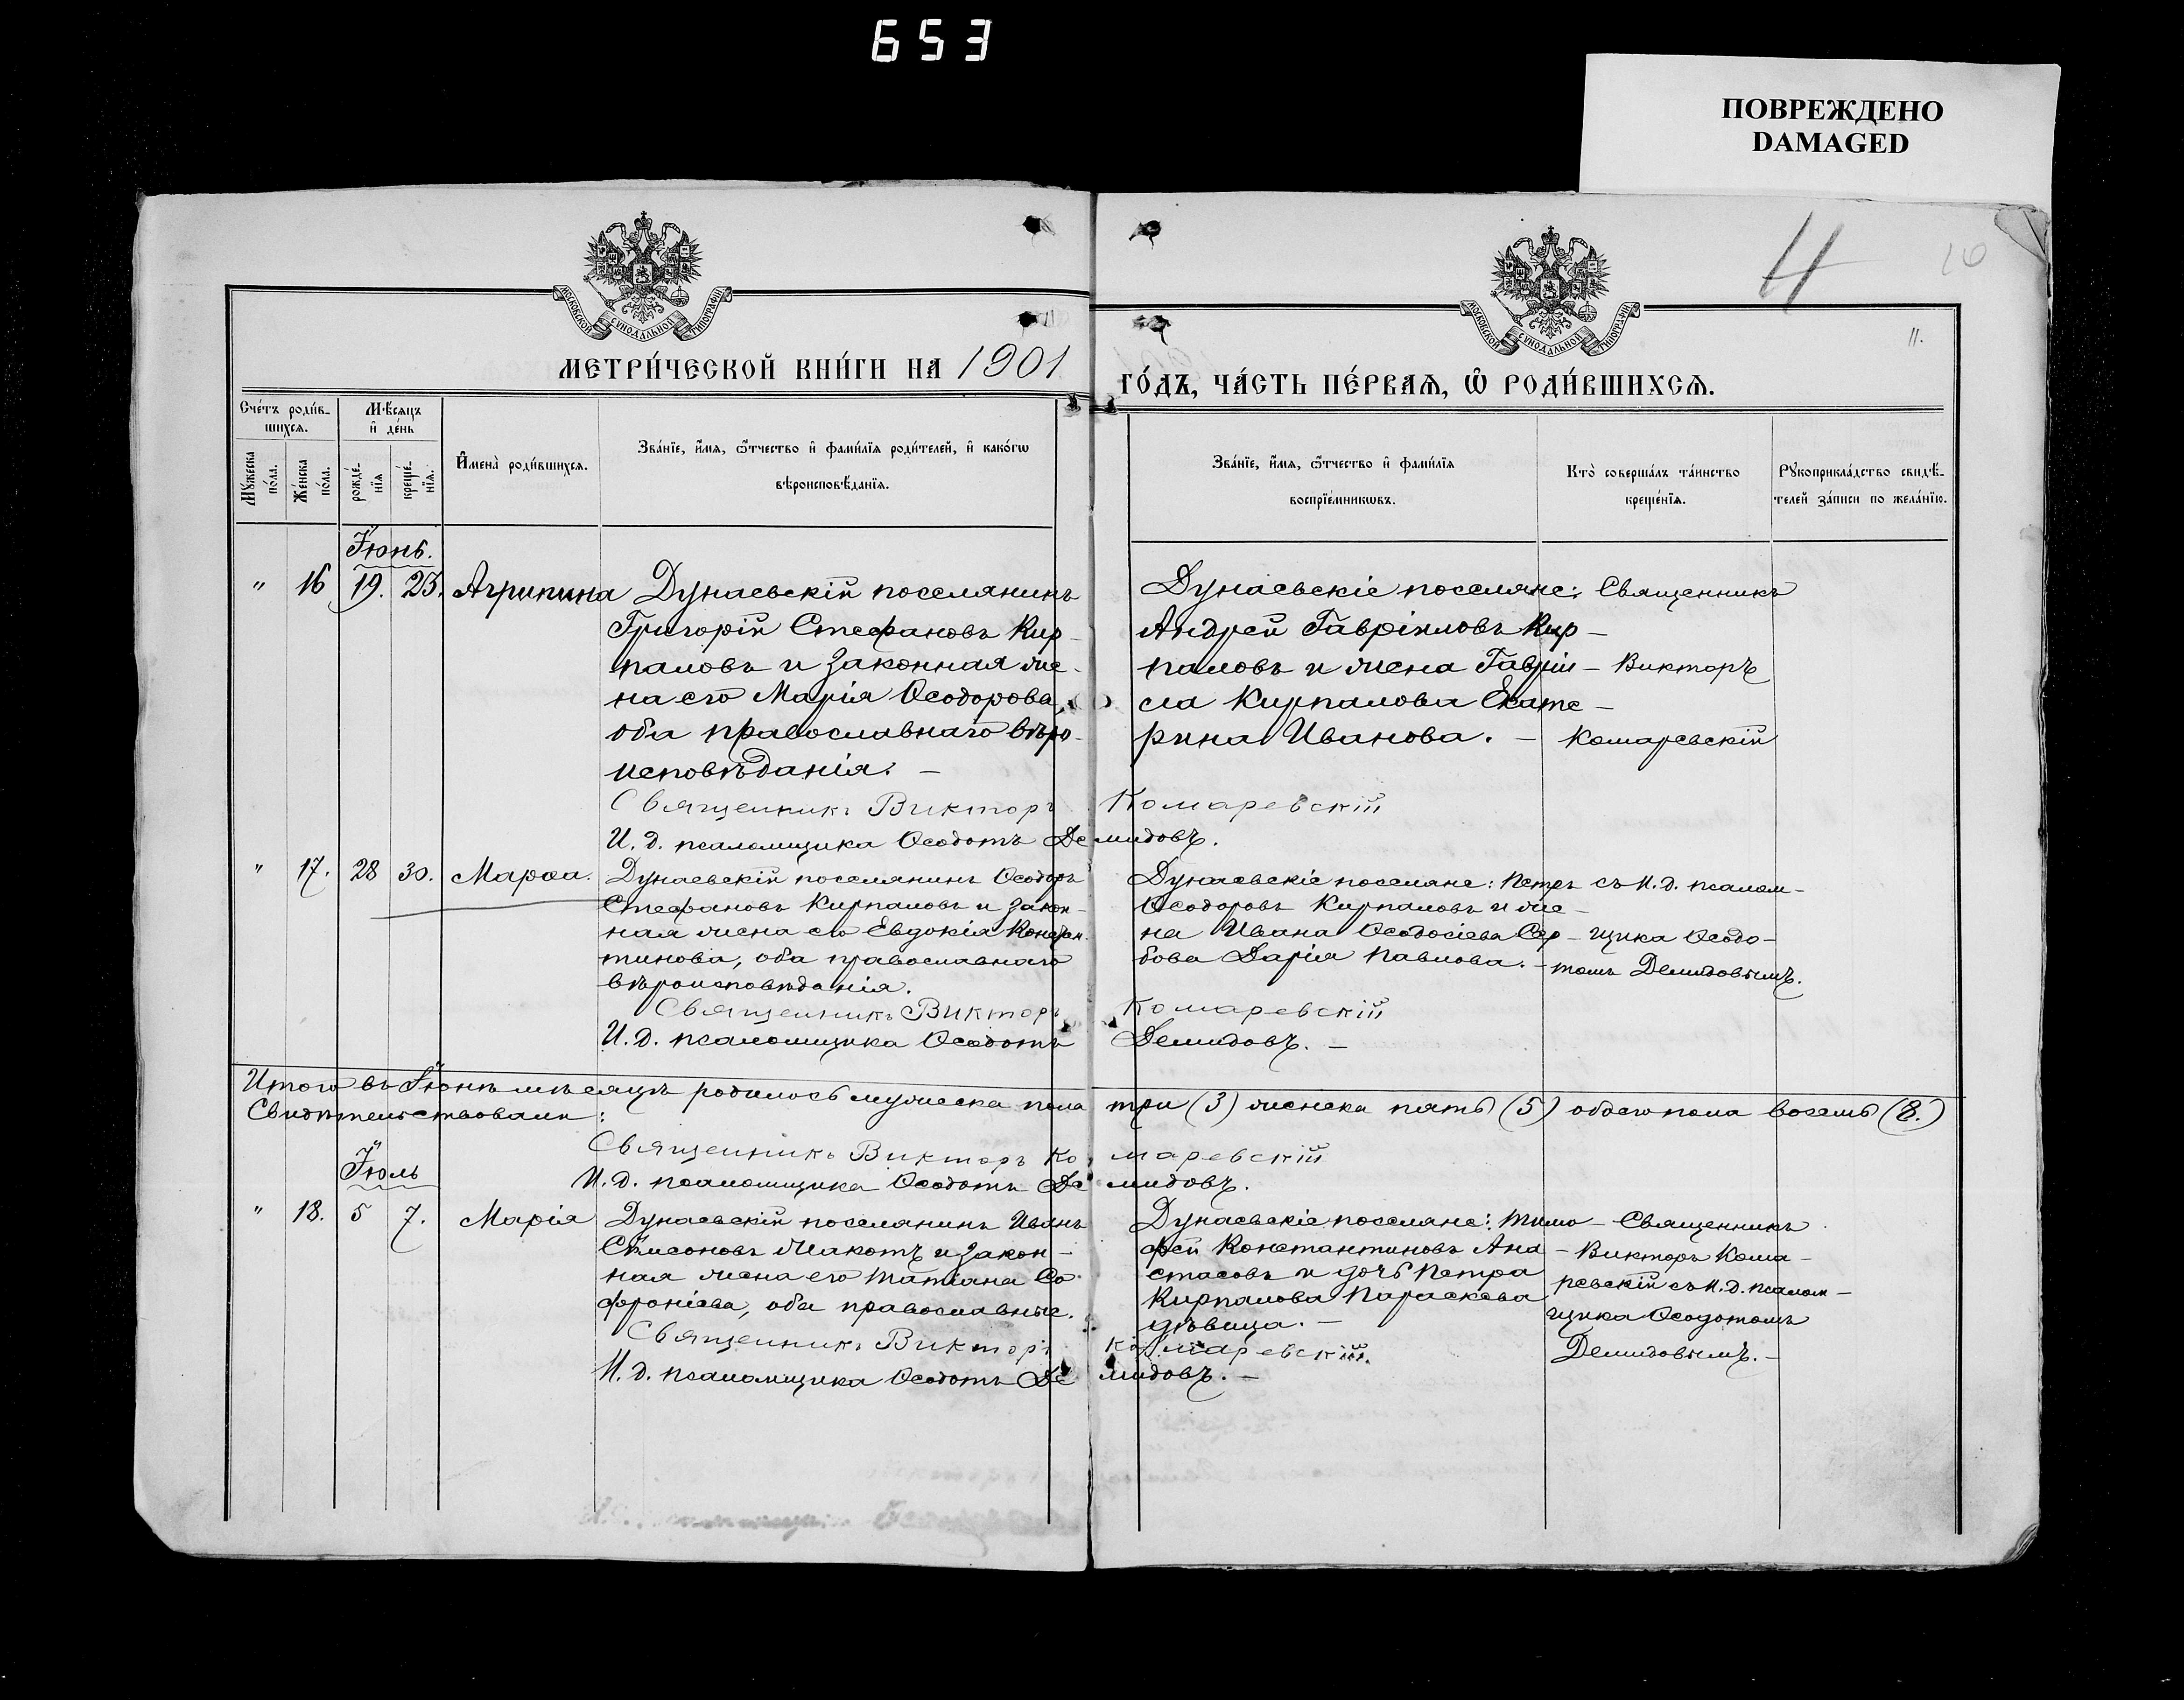 653
ПОВРЕЖДЕНО
DAMAGED
4
10
11.
МОСКОВСКОЙ СѴНОДАЛЬНОЙ ТИПОГРАФІИ
МОСКОВСКОЙ СѴНОДАЛЬНОЙ ТИПОГРАФІИ
МЕТРИ́ЧЕСКОЙ КНИ́ГИ НА 1901
ГО́ДЪ, ЧА́СТЬ ПЕ́РВАЯ, Ѡ РОДИ́ВШИХСЯ.
Сче́тъ роди́в-
шихся.
Мѣ́сяцъ
и де́нь
Мꙋжеска по́ла.
Же́нска по́ла.
рожде́-
нїя
креще́-
нїя.
Имена̀ роди́вшихся.
Зва́нїе, и́мя, ѻ́тчество и фами́лїя роди́телей, и како́гѡ
вѣроисповѣ́данїя.
Зва́нїе, и́мя, ѻ́тчество и фами́лїя
воспрїе́мникѡвъ.
Кто̀ соверша́лъ та́инство
креще́нїя.
Рꙋкоприкла́дство свидѣ́-
телей за́писи по жела́нїю.
Іюнь.
" 16 19. 23. Агрипина
Дунаевскій поселянинъ
Григорій Стефановъ Кир-
паловъ и законная же-
на его Марія Ѳеодорова,
оба православнаго вѣро-
исповѣданія. –
Дунаевскіе поселяне:
Андрей Гавріиловъ Кир-
паловъ и жена Гаврі­и-
ла Кирпалова Екате-
рина Иванова. –
Священникъ
Викторъ
Комаревскій
Священникъ Викторъ Комаревскій
И. д. псаломщика Ѳеодотъ Демидовъ.
" 17. 28 30. Марѳа.
Дунаевскій поселянинъ Ѳеодоръ
Стефановъ Кирпаловъ и закон-
ная жена его Евдокія Констан-
тинова, оба православнаго
вѣроисповѣданія.
Дунаевскіе поселяне: Петръ
Ѳеодоровъ Кирпаловъ и же-
на Ивана Ѳеодосіева Сер-
бова Дарія Павлова. –
съ И. д. псалом-
щика Ѳеодо-
томъ Демидовымъ.
Священникъ Викторъ Комаревскій
И. д. псаломщика Ѳеодотъ Демидовъ. –
Итого въ Іюнѣ мѣсяцѣ родилось мужеска пола три (3) женска пять (5) обоего пола восемь (8.)
Свидѣтельствовали:
Священникъ Викторъ Комаревскій
И. д. псаломщика Ѳеодотъ Демидовъ.
Іюль
" 18. 5 7. Марія
Дунаевскій поселянинъ Иванъ
Симеоновъ Жакотъ и закон-
ная жена его Татіана Со-
фроніева, оба православные.
Дунаевскіе поселяне: Тимо-
фей Константиновъ Ана-
стасовъ и дочь Петра
Кирпалова Параскева
дѣвица. –
Священникъ
Викторъ Кома-
ревскій съ И. д. псалом-
щика Ѳеодотомъ
Демидовымъ. –
Священникъ Викторъ Комаревскій.
И. д. псаломщика Ѳеодотъ Демидовъ. –